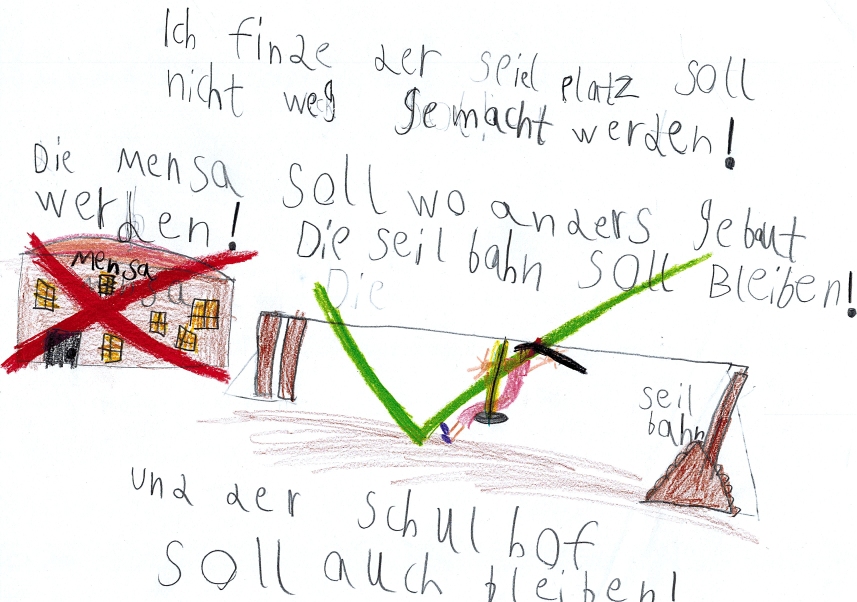 Ich finde der speiel platz soll
nicht weg gemacht werden!
Die Mensa soll wo anders gebaut
werden!
Die seil bahn soll Bleiben!
Mensa
Die
seil
bahn
und der schul hof
soll auch bleiben!